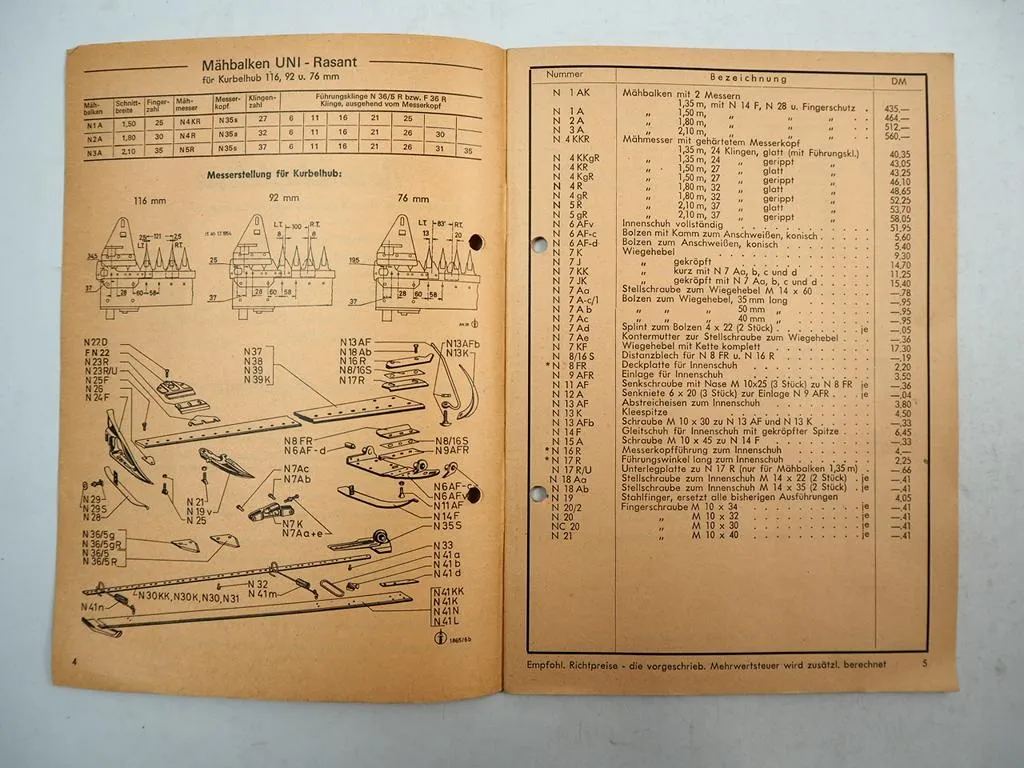 Mähbalken UNI - Rasant
für Kurbelhub 116, 92 u. 76 mm
Mäh-balken Schnitt-breite Finger-zahl Mäh-messer Messer-kopf Klingen-zahl Führungsklinge N 36/5 R bzw. F 36 R Klinge, ausgehend vom Messerkopf
N1A 1,50 25 N4KR N35s 27 6 11 16 21 25
N2A 1,80 30 N4R N35s 32 6 11 16 21 26 30
N3A 2,10 35 N5R N35s 37 6 11 16 21 26 31 35
Messerstellung für Kurbelhub:
116 mm 92 mm 76 mm
L.T. R.T. L.T. R.T. L.T. R.T.
25 121 25 8 100 8 13 83 20
345 25 195
37 28 60 58 37 28 60 58 37 28 60 58
N22D
FN22
N23R
N23R/U
N25F
N26
N24F
N37
N38
N39
N39K
N13AF
N18Ab
N16R
N8/16S
N17R
N13AFb
N13K
N8FR
N6AF-d
N8/16S
N9AFR
N7Ac
N7Ab
N6AF-c
N6AFv
N11AF
N14F
N35S
N29
N29S
N28
N21
N19v
N25
N7K
N7Aa+e
N36/5g
N36/5gR
N36/5
N36/5R
N33
N41a
N41b
N41d
N32
N41m
N30KK, N30K, N30, N31
N41n
N41KK
N41K
N41N
N41L
1865/6b
4
Nummer Bezeichnung DM
N 1 AK Mähbalken mit 2 Messern
1,35 m, mit N 14 F, N 28 u. Fingerschutz . 435,—
N 1 A „ 1,50 m, „ „ „ . 464,—
N 2 A „ 1,80 m, „ „ „ . 512,—
N 3 A „ 2,10 m, „ „ „ . 560,—
N 4 KKR Mähmesser mit gehärtetem Messerkopf
1,35 m, 24 Klingen, glatt (mit Führungskl.) 40,35
N 4 KKgR „ 1,35 m, 24 „ gerippt „ 43,05
N 4 KR „ 1,50 m, 27 „ glatt „ 43,25
N 4 KgR „ 1,50 m, 27 „ gerippt „ 46,10
N 4 R „ 1,80 m, 32 „ glatt „ 48,65
N 4 gR „ 1,80 m, 32 „ gerippt „ 52,25
N 5 R „ 2,10 m, 37 „ glatt „ 53,70
N 5 gR „ 2,10 m, 37 „ gerippt „ 58,05
N 6 AFv Innenschuh vollständig . . . . 51,95
N 6 AF-c Bolzen mit Kamm zum Anschweißen, konisch . . . . 5,60
N 6 AF-d Bolzen zum Anschweißen, konisch . . . . 5,40
N 7 K Wiegehebel . . . . 9,30
N 7 J „ gekröpft . . . . 14,70
N 7 KK „ kurz mit N 7 Aa, b, c und d . . . . 11,25
N 7 JK „ gekröpft mit N 7 Aa, b, c und d . . . . 15,40
N 7 Aa Stellschraube zum Wiegehebel M 14 x 60 . . . . —.78
N 7 A-c/1 Bolzen zum Wiegehebel, 35 mm lang . . . . —.95
N 7 A b „ „ „ 50 mm „ . . . . —.95
N 7 Ac „ „ „ 40 mm „ . . . . —.95
N 7 Ad Splint zum Bolzen 4 x 22 (2 Stück) . . . . je —.05
N 7 Ae Kontermutter zur Stellschraube zum Wiegehebel . . —.36
N 7 KF Wiegehebel mit Kette komplett . . . . 17.30
N 8/16 S Distanzblech für N 8 FR u. N 16 R . . . . —.19
* N 8 FR Deckplatte für Innenschuh . . . . 2,20
* N 9 AFR Einlage für Innenschuh . . . . 3,50
N 11 AF Senkschraube mit Nase M 10x25 (3 Stück) zu N 8 FR je —.36
N 12 A Senkniete 6 x 20 (3 Stück) zur Einlage N 9 AFR . . je —.04
N 13 AF Abstreicheisen zum Innenschuh . . . . 3,80
N 13 K Kleespitze . . . . 4,50
N 13 AFb Schraube M 10 x 30 zu N 13 AF und N 13 K . . . . —.33
N 14 F Gleitschuh für Innenschuh mit gekröpfter Spitze . . 6,45
N 15 A Schraube M 10 x 45 zu N 14 F . . . . —.33
* N 16 R Messerkopfführung zum Innenschuh . . . . 4,—
* N 17 R Führungswinkel lang zum Innenschuh . . . . 2,25
N 17 R/U Unterlegplatte zu N 17 R (nur für Mähbalken 1,35 m) . —.66
N 18 Aa Stellschraube zum Innenschuh M 14 x 22 (2 Stück) . je —.41
N 18 Ab Stellschraube zum Innenschuh M 14 x 35 (2 Stück) . je —.41
* N 19 Stahlfinger, ersetzt alle bisherigen Ausführungen 4,05
N 20/2 Fingerschraube M 10 x 34 . . . . je —.41
N 20 „ M 10 x 32 . . . . je —.41
NC 20 „ M 10 x 30 . . . . je —.41
N 21 „ M 10 x 40 . . . . je —.41
Empfohl. Richtpreise - die vorgeschrieb. Mehrwertsteuer wird zusätzl. berechnet 5